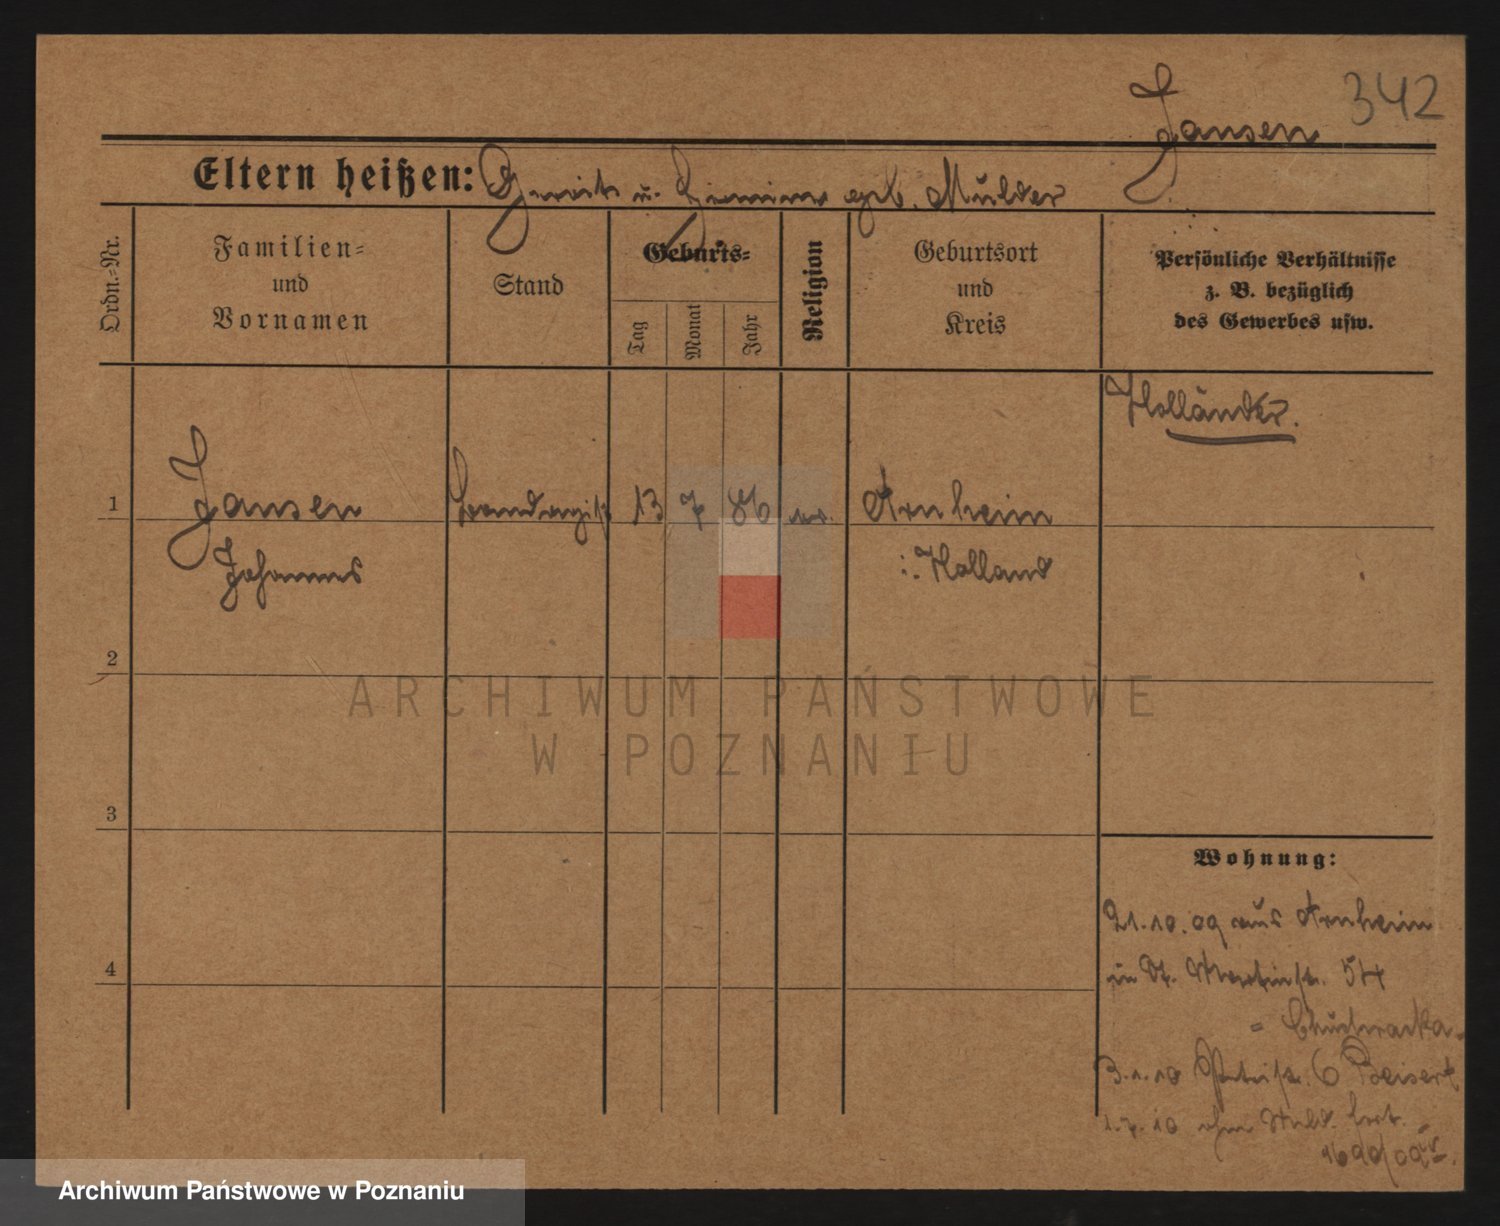 Jansen 342
Eltern heißen: Gerrit u. geb. Mulder
Ordn.=Nr.
Familien=
und
Vornamen
Stand
Geburts=
Tag
Monat
Jahr
Religion
Geburtsort
und
Kreis
Persönliche Verhältnisse
z. B. bezüglich
des Gewerbes usw.
Holländer.
1
Jansen
13 7 86
Arnheim
Johannes
i. Holland
2
ARCHIWUM PAŃSTWOWE
W POZNANIU
3
Wohnung:
21.10.09 aus Arnheim
in St. Martinstr. 54
3.1.10 6 Beisert
4
1.7.10
Archiwum Państwowe w Poznaniu